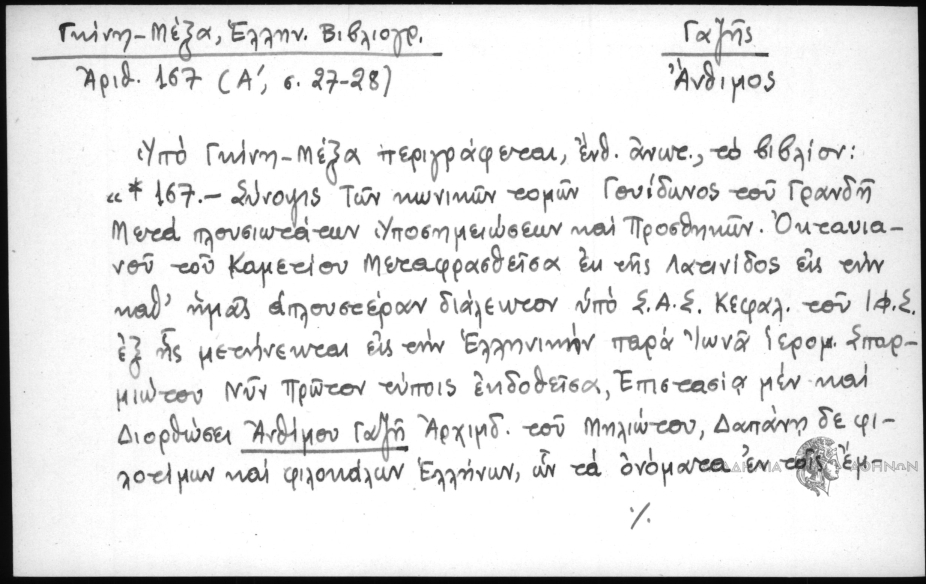 Γκίνη-Μέξα, Ἑλλην. Βιβλιογρ.
Ἀριθ. 167 (Α΄, σ. 27-28)
Γαζῆς
Ἄνθιμος
Ὑπὸ Γκίνη-Μέξα περιγράφεται, ἔνθ. ἄνωτ., τὸ βιβλίον:
«* 167.- Σύνοψις Τῶν κωνικῶν τομῶν Γουίδωνος τοῦ Γρανδῆ
Μετὰ πλουσιωτάτων Ὑποσημειώσεων καὶ Προσθηκῶν. Ὀκταυια-
νοῦ τοῦ Καμετίου Μεταφρασθεῖσα ἐκ τῆς Λατινίδος εἰς τὴν
καθ' ἡμᾶς ἁπλουστέραν διάλεκτον ὑπὸ Σ.Α.Σ. Κεφαλ. τοῦ ΙΦ.Σ.
ἐξ ἧς μετήνεκται εἰς τὴν Ἑλληνικὴν παρὰ Ἰωνᾶ ἱερομ. Σπαρ-
μιώτου Νῦν Πρῶτον τύποις ἐκδοθεῖσα, Ἐπιστασίᾳ μὲν καὶ
Διορθώσει Ἀνθίμου Γαζῆ Ἀρχιμδ. τοῦ Μηλιώτου, Δαπάνῃ δὲ φι-
λοτίμων καὶ φιλοκάλων Ἑλλήνων, ὧν τὰ ὀνόματα ἐν τοῖς ἔμ-
ΑΘΗΝΩΝ
./.